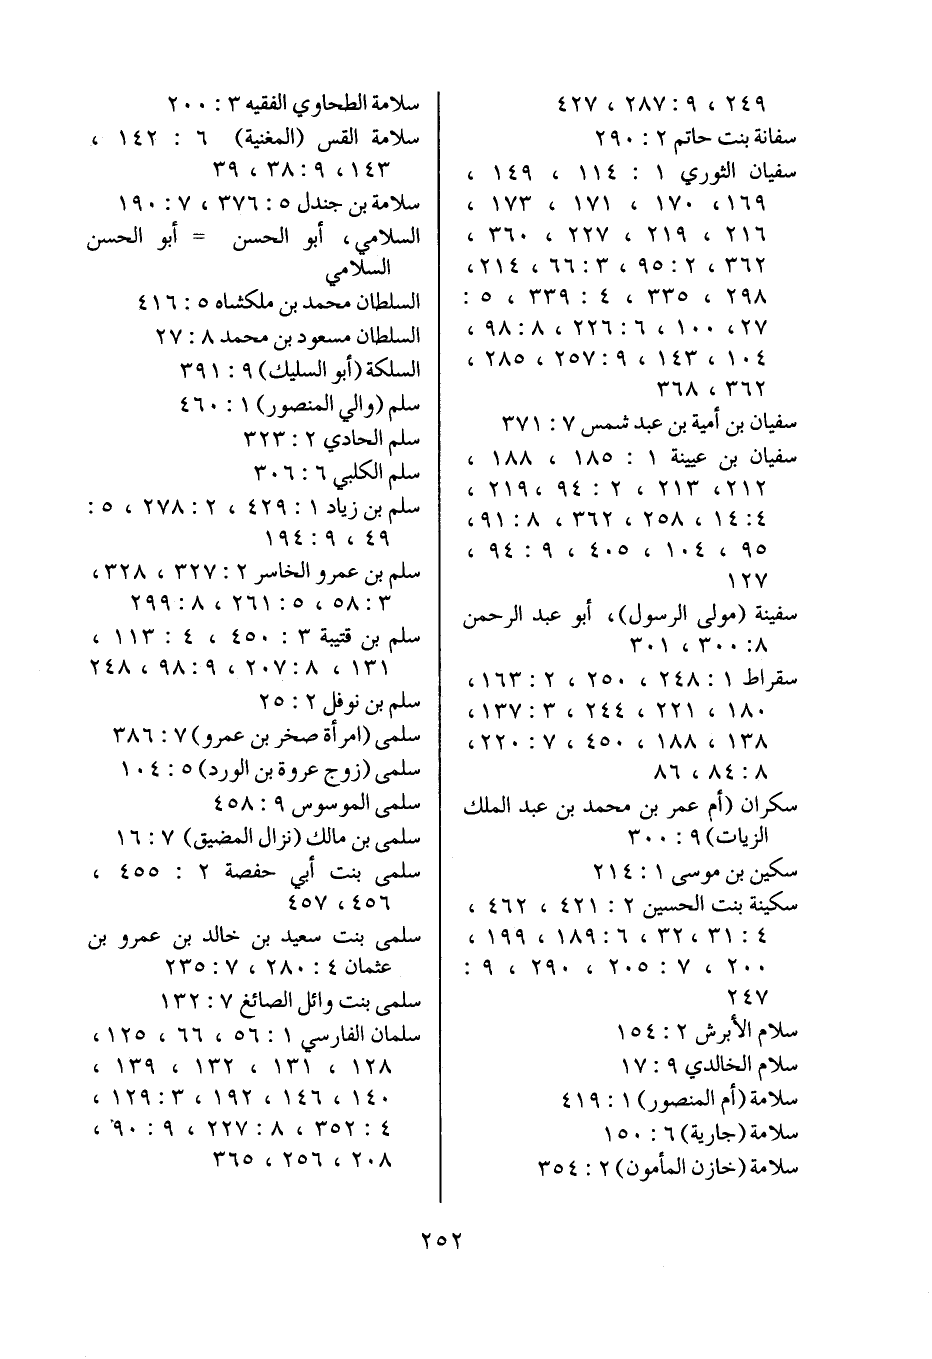 ٢٤٩ ، ٩ : ٢٨٧ ، ٤٢٧
سفانة بنت حاتم ٢ : ٢٩٠
سفيان الثوري ١ : ١١٤ ، ١٤٩ ،
١٦٩، ١٧٠ ، ١٧١ ، ١٧٣ ،
٢١٦ ، ٢١٩ ، ٢٢٧ ، ٣٦٠ ،
٣٦٢ ، ٢ : ٩٥ ، ٣ : ٦٦ ، ٢١٤،
٢٩٨ ، ٣٣٥ ، ٤ : ٣٣٩ ، ٥ :
٢٧، ١٠٠ ، ٦ : ٢٢٦ ، ٨ : ٩٨ ،
١٠٤ ، ١٤٣ ، ٩ : ٢٥٧ ، ٢٨٥ ،
٣٦٢ ، ٣٦٨
سفيان بن أمية بن عبد شمس ٧ : ٣٧١
سفيان بن عيينة ١ : ١٨٥ ، ١٨٨ ،
٢١٢، ٢١٣ ، ٢ : ٩٤ ، ٢١٩ ،
٤ : ١٤ ، ٢٥٨ ، ٣٦٢ ، ٨ : ٩١ ،
٩٥ ، ١٠٤ ، ٤٠٥ ، ٩ : ٩٤ ،
١٢٧
سفينة (مولى الرسول)، أبو عبد الرحمن
٨ : ٣٠٠ ، ٣٠١
سقراط ١ : ٢٤٨ ، ٢٥٠ ، ٢ : ١٦٣ ،
١٨٠ ، ٢٢١ ، ٢٤٤ ، ٣ : ١٣٧ ،
١٣٨ ، ١٨٨ ، ٤٥٠ ، ٧ : ٢٢٠ ،
٨ : ٨٤ ، ٨٦
سكران (أم عمر بن محمد بن عبد الملك
الزيات) ٩ : ٣٠٠
سكين بن موسى ١ : ٢١٤
سكينة بنت الحسين ٢ : ٤٢١ ، ٤٦٢ ،
٤ : ٣١ ، ٣٢ ، ٦ : ١٨٩ ، ١٩٩ ،
٢٠٠ ، ٧ : ٢٠٥ ، ٢٩٠ ، ٩ :
٢٤٧
سلام الأبرش ٢ : ١٥٤
سلام الخالدي ٩ : ١٧
سلامة (أم المنصور) ١ : ٤١٩
سلامة (جارية) ٦ : ١٥٠
سلامة (خازن المأمون) ٢ : ٣٥٤
سلامة الطحاوي الفقيه ٣ : ٢٠٠
سلامة القس (المغنية) ٦ : ١٤٢ ،
١٤٣، ٩ : ٣٨ ، ٣٩
سلامة بن جندل ٥ : ٣٧٦ ، ٧ : ١٩٠
السلامي، أبو الحسن = أبو الحسن
السلامي
السلطان محمد بن ملكشاه ٥ : ٤١٦
السلطان مسعود بن محمد ٨ : ٢٧
السلكة (أبو السليك) ٩ : ٣٩١
سلم (والي المنصور) ١ : ٤٦٠
سلم الحادي ٢ : ٣٢٣
سلم الكلبي ٦ : ٣٠٦
سلم بن زياد ١ : ٤٢٩ ، ٢ : ٢٧٨ ، ٥ :
٤٩ ، ٩ : ١٩٤
سلم بن عمرو الخاسر ٢ : ٣٢٧ ، ٣٢٨ ،
٣ : ٥٨ ، ٥ : ٢٦١ ، ٨ : ٢٩٩
سلم بن قتيبة ٣ : ٤٥٠ ، ٤ : ١١٣ ،
١٣١ ، ٨ : ٢٠٧ ، ٩ : ٩٨ ، ٢٤٨
سلم بن نوفل ٢ : ٢٥
سلمى (امرأة صخر بن عمرو) ٧ : ٣٨٦
سلمى (زوج عروة بن الورد) ٥ : ١٠٤
سلمى الموسوس ٩ : ٤٥٨
سلمى بن مالك (نزال المضيق) ٧ : ١٦
سلمى بنت أبي حفصة ٢ : ٤٥٥ ،
٤٥٦ ، ٤٥٧
سلمى بنت سعيد بن خالد بن عمرو بن
عثمان ٤ : ٢٨٠ ، ٧ : ٢٣٥
سلمى بنت وائل الصائغ ٧ : ١٣٢
سلمان الفارسي ١ : ٥٦ ، ٦٦ ، ١٢٥ ،
١٢٨ ، ١٣١ ، ١٣٢ ، ١٣٩ ،
١٤٠ ، ١٤٦ ، ١٩٢ ، ٣ : ١٢٩ ،
٤ : ٣٥٢ ، ٨ : ٢٢٧ ، ٩ : ٩٠ ،
٢٠٨ ، ٢٥٦ ، ٣٦٥
٢٥٢